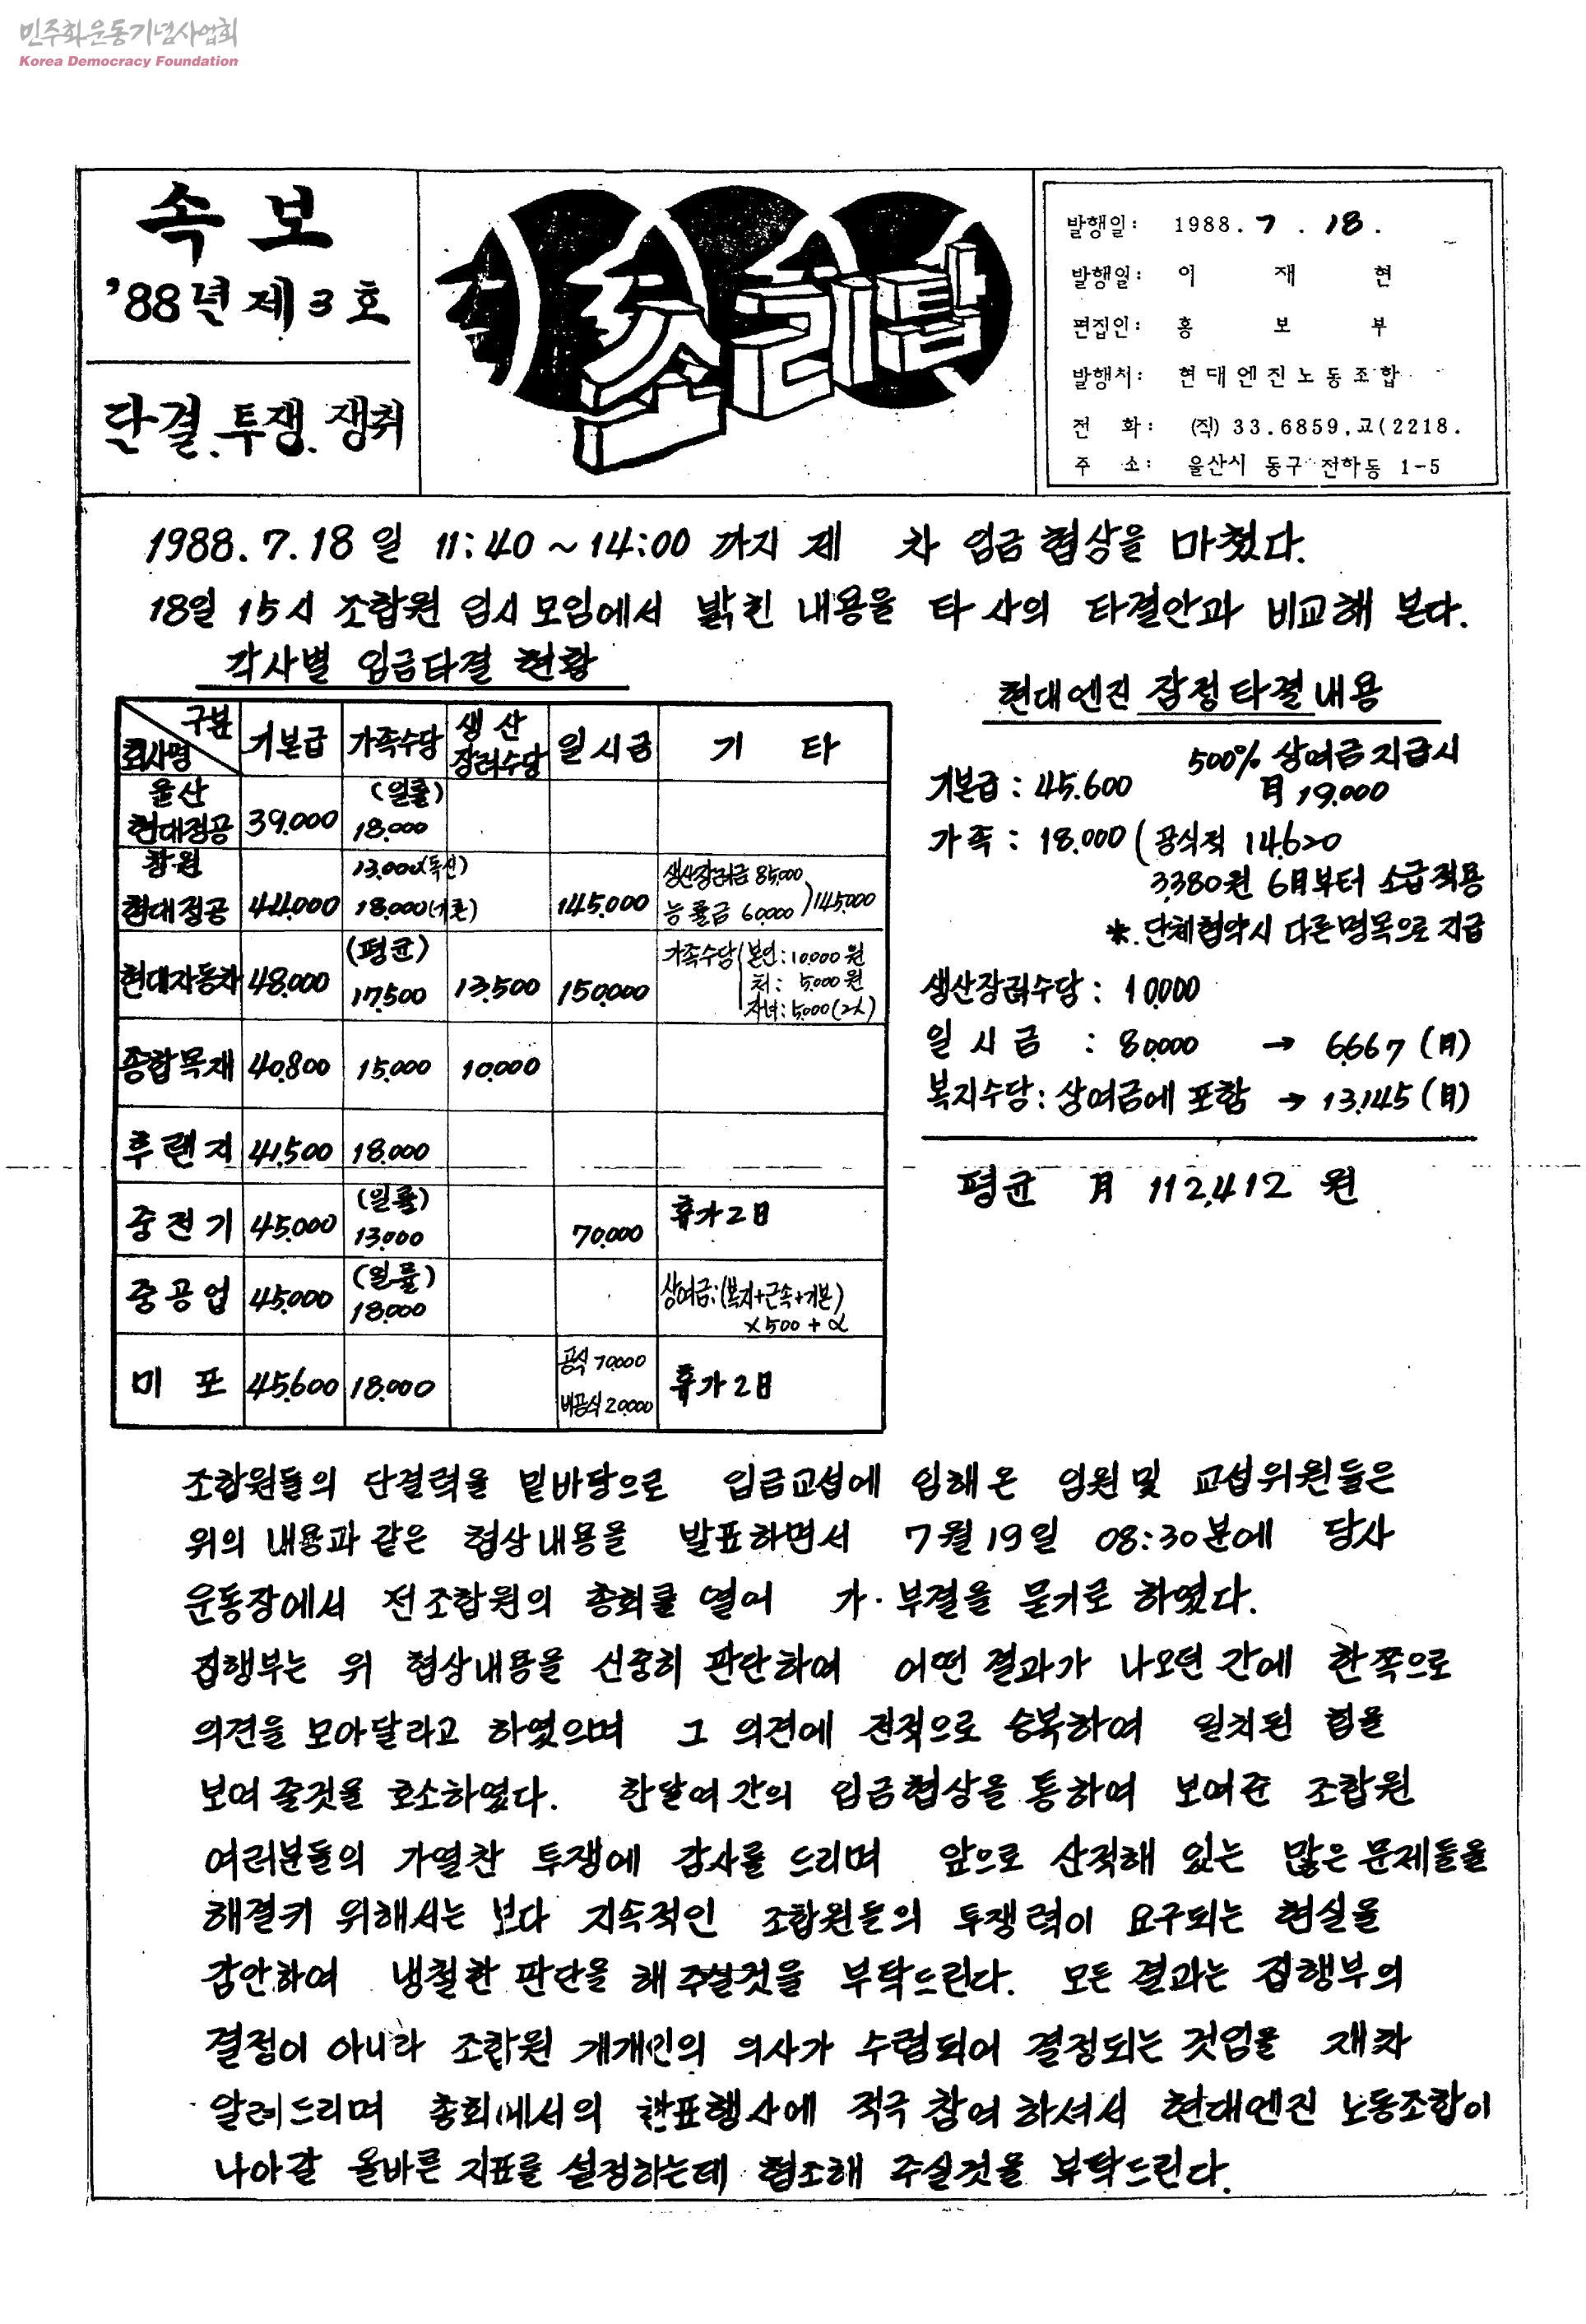 민주화운동기념사업회
Korea Democracy Foundation
속보
'88년 제3호
단결.투쟁.쟁취
소리통
발행일: 1988.7.18.
발행일: 이 재 현
편집인: 홍 보 부
발행처: 현대엔진노동조합
전 화: (직) 33.6859.교(2218.
주 소: 울산시 동구 전하동 1-5
1988.7.18일 11:40~14:00 까지 제 차 임금협상을 마쳤다.
18일 15시 조합원 임시모임에서 밝힌 내용을 타사의 타결안과 비교해 본다.
각사별 임금타결 현황
구분 회사명 기본급 가족수당 생산장려수당 일시금 기 타
울산 현대정공 39,000 (일률) 18,000
창원 현대정공 44,000 13,000(독신) 18,000(기혼) 145,000 생산장려금 85,000 능률금 60,000 )145,000
현대자동차 48,000 (평균) 17,500 13,500 150,000 가족수당(본인:10,000원 처: 5,000원 자녀:5,000(2人)
종합목재 40,800 15,000 10,000
후렌지 41,500 18,000
중전기 45,000 (일률) 13,000 70,000 휴가2日
중공업 45,000 (일률) 18,000 상여금:(복지+근속+기본) ×500+α
미 포 45,600 18,000 공식 70,000 비공식 20,000 휴가2日
현대엔진 잠정타결내용
기본급: 45,600 500% 상여금 지급시 月 19,000
가 족: 18,000(공식적 14,620
3,380원 6月부터 소급적용
*.단체협약시 다른명목으로 지급
생산장려수당: 10,000
일 시 금 : 80,000 → 6,667(月)
복지수당: 상여금에 포함 → 13,145(月)
평균 月 112,412 원
조합원들의 단결력을 밑바탕으로 임금교섭에 임해온 임원및 교섭위원들은
위의 내용과 같은 협상내용을 발표하면서 7월19일 08:30분에 당사
운동장에서 전조합원의 총회를 열어 가·부결을 묻기로 하였다.
집행부는 위 협상내용을 신중히 판단하여 어떤 결과가 나오던 간에 한쪽으로
의견을 모아달라고 하였으며 그 의견에 전적으로 승복하여 일치된 힘을
보여 줄것을 호소하였다. 한달여간의 임금협상을 통하여 보여준 조합원
여러분들의 가열찬 투쟁에 감사를 드리며 앞으로 산적해 있는 많은 문제들을
해결키 위해서는 보다 지속적인 조합원들의 투쟁력이 요구되는 현실을
감안하여 냉철한 판단을 해 주실것을 부탁드린다. 모든 결과는 집행부의
결정이 아니라 조합원 개개인의 의사가 수렴되어 결정되는 것임을 재차
알려드리며 총회에서의 찬표행사에 적극 참여 하셔서 현대엔진 노동조합이
나아갈 올바른 지표를 설정하는데 협조해 주실것을 부탁드린다.